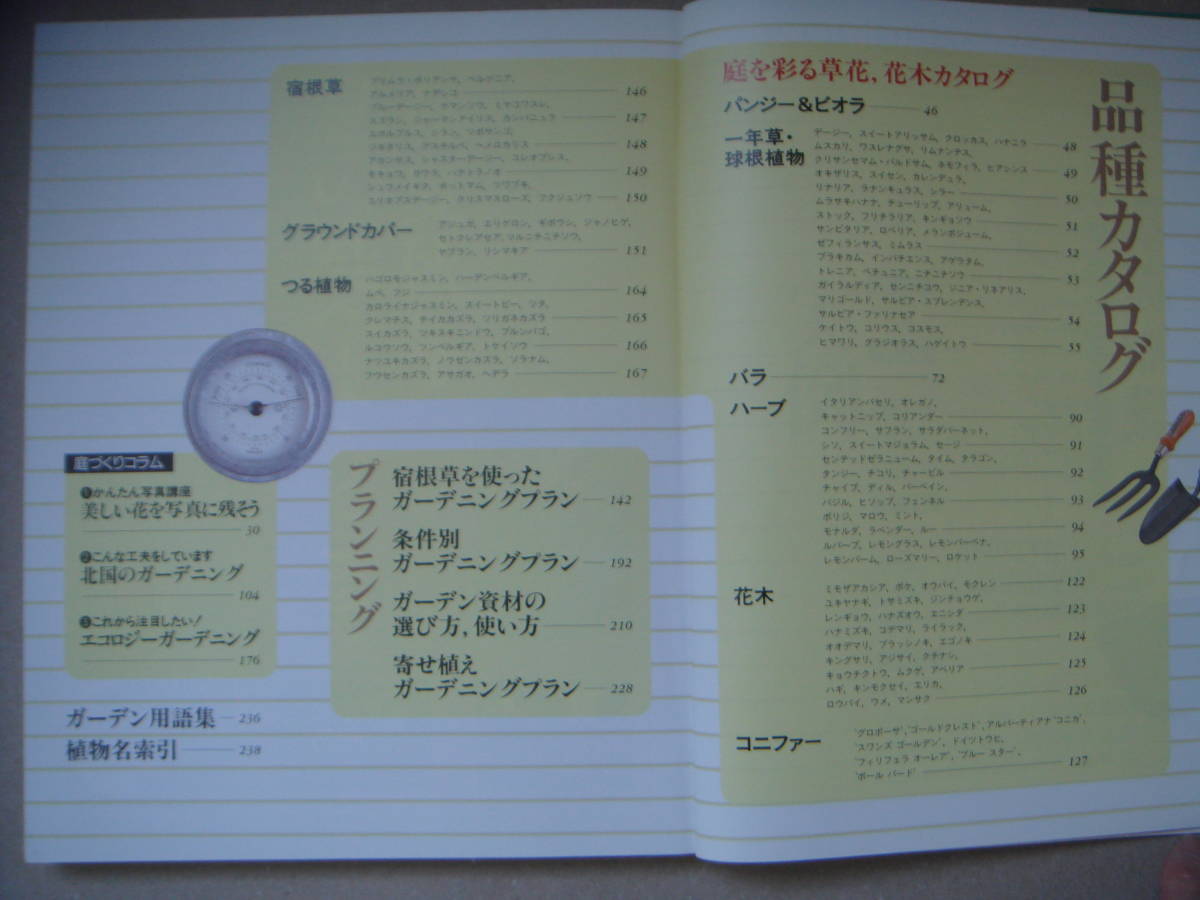 品種カタログ
庭を彩る草花, 花木カタログ
パンジー&ビオラ 46
一年草・
球根植物
デージー, スイートアリッサム, クロッカス, ハナニラ 48
ムスカリ, ワスレナグサ, リムナンテス,
クリサンセマム・パルドサム, ネモフィラ, ヒアシンス 49
オキザリス, スイセン, カレンデュラ,
リナリア, ラナンキュラス, シラー 50
ムラサキハナナ, チューリップ, アリューム,
ストック, フリチラリア, キンギョソウ 51
サンビタリア, ロベリア, メランポジューム,
ゼフィランサス, ミムラス 52
ブラキカム, インパチエンス, アゲラタム,
トレニア, ペチュニア, ニチニチソウ 53
ガイラルディア, センニチコウ, ジニア・リネアリス,
マリゴールド, サルビア・スプレンデンス,
サルビア・ファリナセア 54
ケイトウ, コリウス, コスモス,
ヒマワリ, グラジオラス, ハゲイトウ 55
バラ 72
ハーブ
イタリアンパセリ, オレガノ,
キャットニップ, コリアンダー 90
コンフリー, サフラン, サラダバーネット,
シソ, スイートマジョラム, セージ 91
センテッドゼラニューム, タイム, タラゴン,
タンジー, チコリ, チャービル 92
チャイブ, ディル, バーベイン,
バジル, ヒソップ, フェンネル 93
ボリジ, マロウ, ミント,
モナルダ, ラベンダー, ルー 94
ルバーブ, レモングラス, レモンバーベナ,
レモンバーム, ローズマリー, ロケット 95
花木
ミモザアカシア, ボケ, オウバイ, モクレン 122
ユキヤナギ, トサミズキ, ジンチョウゲ,
レンギョウ, ハナズオウ, エニシダ 123
ハナミズキ, コデマリ, ライラック,
オオデマリ, ブラッシノキ, エゴノキ 124
キングサリ, アジサイ, クチナシ,
キョウチクトウ, ムクゲ, アベリア 125
ハギ, キンモクセイ, エリカ,
ロウバイ, ウメ, マンサク 126
コニファー
'グロボーサ', 'ゴールドクレスト', アルバーティアナ'コニカ',
'スワンズ ゴールデン', ドイツトウヒ,
'フィリフェラ オーレア', 'ブルー スター',
'ボール バード' 127
宿根草
プリムラ・ポリアンサ, ベルゲニア,
アルメリア, ナデシコ 146
ブルーデージー, ケマンソウ, ミヤコワスレ,
スズラン, ジャーマンアイリス, カンパニュラ 147
エロルブルス, シラン, ツボサンゴ,
ジギタリス, アスチルベ, ヘメロカリス 148
アカンサス, シャスターデージー, コレオプシス,
キキョウ, ガウラ, ハナトラノオ 149
シュウメイギク, ポットマム, ツワブキ,
ユリオプスデージー, クリスマスローズ, フクジュソウ 150
グラウンドカバー
アジュガ, エリゲロン, ギボウシ, ジャノヒゲ,
セトクレアセア, ツルニチニチソウ,
ヤブラン, リシマキア 151
つる植物
ハゴロモジャスミン, ハーデンベルギア,
ムベ, フジ 164
カロライナジャスミン, スイートピー, ツタ,
クレマチス, テイカカズラ, ツリガネカズラ 165
スイカズラ, ツキヌキニンドウ, プルンバゴ,
ルコウソウ, ツンベルギア, トケイソウ 166
ナツユキカズラ, ノウゼンカズラ, ソラナム,
フウセンカズラ, アサガオ, ヘデラ 167
庭づくりコラム
❶かんたん写真講座
美しい花を写真に残そう
30
❷こんな工夫をしています
北国のガーデニング
104
❸これから注目したい!
エコロジーガーデニング
176
プランニング
宿根草を使った
ガーデニングプラン 142
条件別
ガーデニングプラン 192
ガーデン資材の
選び方, 使い方 210
寄せ植え
ガーデニングプラン 228
ガーデン用語集 236
植物名索引 238